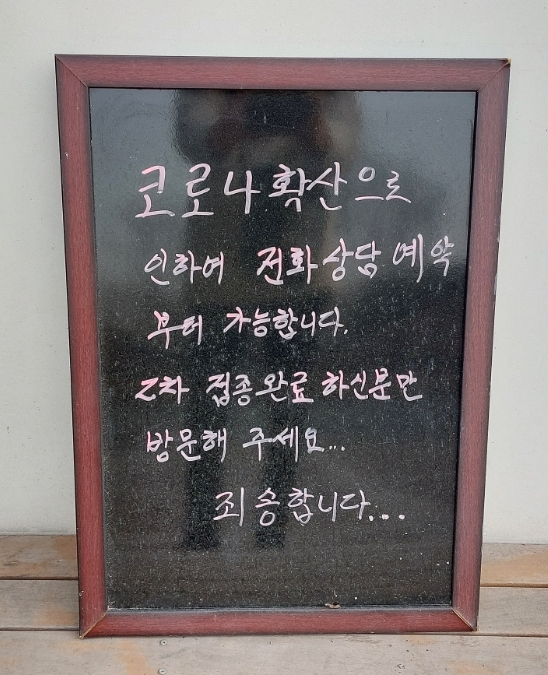 코로나 확산으로
인하여 전화상담 예약
부터 가능합니다.
2차 접종완료 하신분만
방문해 주세요...
죄송합니다...